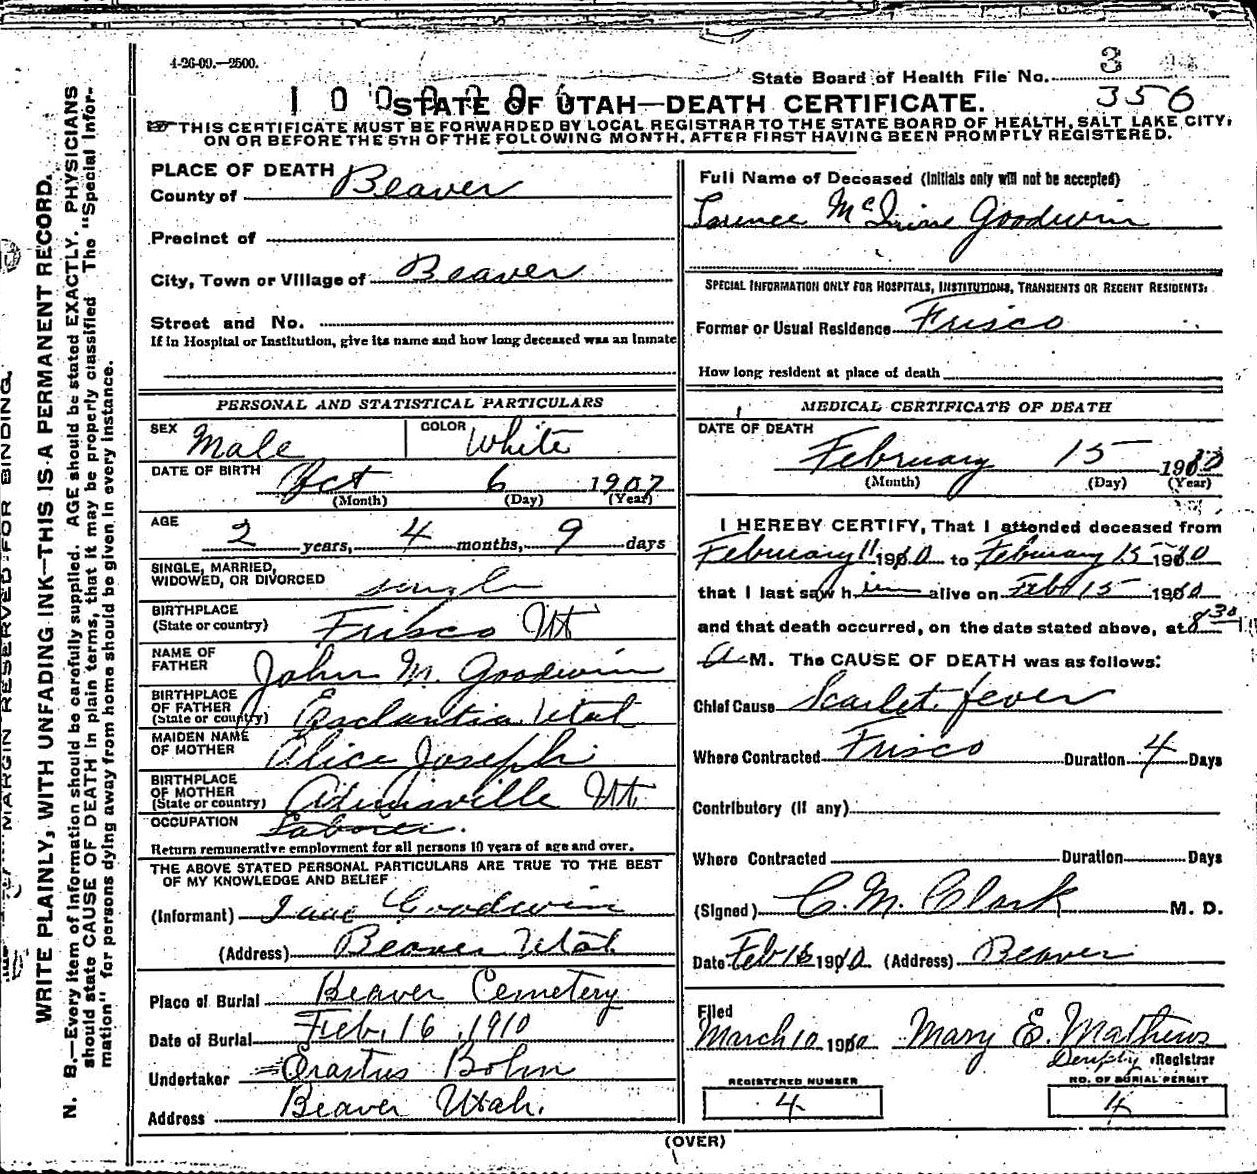 4-26-09.—2500.
State Board of Health File No. 3
356
STATE OF UTAH—DEATH CERTIFICATE.
THIS CERTIFICATE MUST BE FORWARDED BY LOCAL REGISTRAR TO THE STATE BOARD OF HEALTH, SALT LAKE CITY,
ON OR BEFORE THE 5TH OF THE FOLLOWING MONTH, AFTER FIRST HAVING BEEN PROMPTLY REGISTERED.
MARGIN RESERVED FOR BINDING.
WRITE PLAINLY, WITH UNFADING INK—THIS IS A PERMANENT RECORD.
N. B.—Every item of information should be carefully supplied. AGE should be stated EXACTLY. PHYSICIANS
should state CAUSE OF DEATH in plain terms, that it may be properly classified The "Special Infor-
mation" for persons dying away from home should be given in every instance.
PLACE OF DEATH
County of Beaver
Precinct of
City, Town or Village of Beaver
Street and No.
If in Hospital or Institution, give its name and how long deceased was an Inmate
PERSONAL AND STATISTICAL PARTICULARS
SEX Male COLOR White
DATE OF BIRTH Oct 6 1907
(Month) (Day) (Year)
AGE
2 years, 4 months, 9 days
SINGLE, MARRIED,
WIDOWED, OR DIVORCED single
BIRTHPLACE
(State or country) Frisco Ut
NAME OF
FATHER John M. Goodwin
BIRTHPLACE
OF FATHER
(State or country) Utah
MAIDEN NAME
OF MOTHER Alice Joseph
BIRTHPLACE
OF MOTHER
(State or country) Adamsville Ut.
OCCUPATION Laborer.
Return remunerative employment for all persons 10 years of age and over.
THE ABOVE STATED PERSONAL PARTICULARS ARE TRUE TO THE BEST
OF MY KNOWLEDGE AND BELIEF
(Informant) Goodwin
(Address) Beaver Utah
Place of Burial Beaver Cemetery
Date of Burial Feb. 16, 1910
Undertaker Erastus Bohn
Address Beaver Utah.
Full Name of Deceased (Initials only will not be accepted)
Goodwin
SPECIAL INFORMATION ONLY FOR HOSPITALS, INSTITUTIONS, TRANSIENTS OR RECENT RESIDENTS:
Former or Usual Residence Frisco
How long resident at place of death
MEDICAL CERTIFICATE OF DEATH
DATE OF DEATH
February 15 1910
(Month) (Day) (Year)
I HEREBY CERTIFY, That I attended deceased from
February 11 1910 to February 15 1910
that I last saw him alive on Feb 15 1910
and that death occurred, on the date stated above, at 8 30
A M. The CAUSE OF DEATH was as follows:
Chief Cause Scarlet fever
Where Contracted Frisco Duration 4 Days
Contributory (if any)
Where Contracted Duration Days
(Signed) C. M. Clark M. D.
Date Feb 16 1910 (Address) Beaver
Filed
March 10 1910 Mary E. Mathews
Deputy Registrar
REGISTERED NUMBER
4
NO. OF BURIAL PERMIT
4
(OVER)